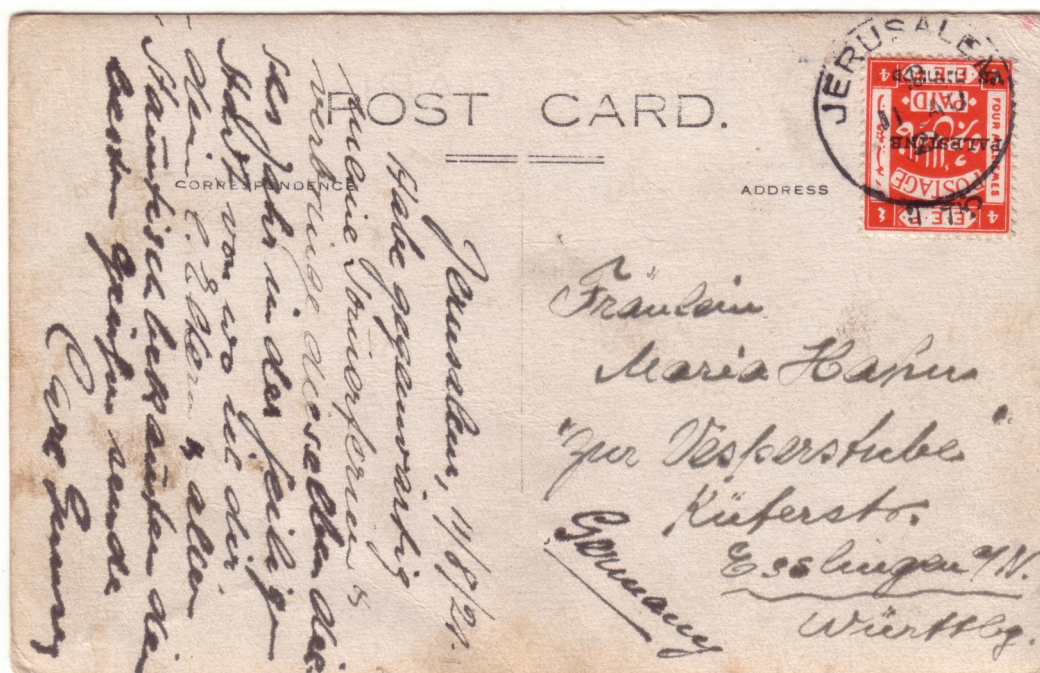 POST CARD.
CORRESPONDENCE
ADDRESS
JERUSALEM
11 AU
PALESTINE
PAID
E.E.F.
POSTAGE
FOUR MILLIEMES
4
4
Jerusalem, 11/8/21.
Habe gegenwärtig
meine Sommerferien &
verbringe dieselben die-
ses Jahr in der heilig
Stadt von wo wie dir
den l. Eltern & allen
Stammtischbekannten die
besten Grüße sende
Fräulein
Maria Hahn
"Zur Vesperstube"
Küferstr.
Esslingen a/N.
Württbg.
Germany